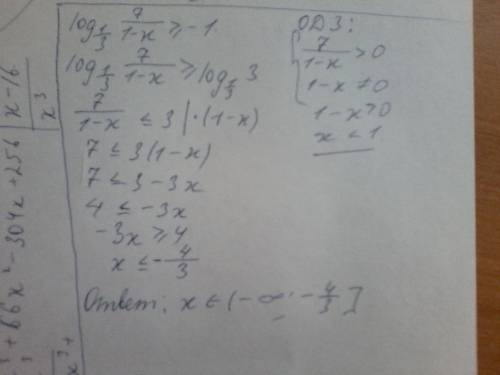 log_{1/3} 7/(1-x) ≥ -1
log_{1/3} 7/(1-x) ≥ log_{1/3} 3
7/(1-x) ≤ 3 | ·(1-x)
7 ≤ 3(1-x)
7 ≤ 3 - 3x
4 ≤ -3x
-3x ≥ 4
x ≤ -4/3
Ответ: x ∈ (-∞; -4/3]
ОДЗ:
7/(1-x) > 0
1-x ≠ 0
1-x > 0
x < 1
+66x² - 304x + 256 | x-16
x³
x³+